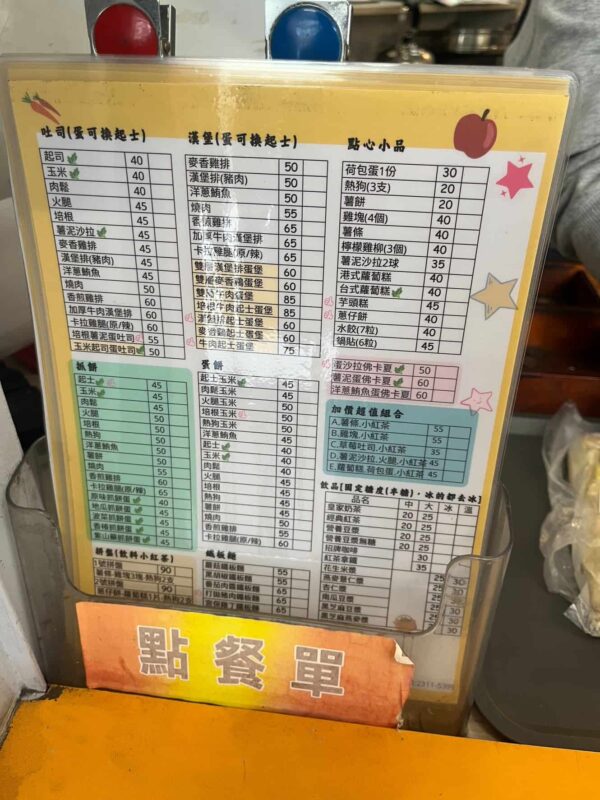 吐司(蛋可換起士)
起司 40
玉米 40
肉鬆 40
火腿 45
培根 45
薯泥沙拉 45
麥香雞排 45
漢堡排(豬肉) 45
洋蔥鮪魚 45
燒肉 50
香煎雞排 60
加厚牛肉漢堡排 60
卡拉雞腿(原/辣) 60
培根薯泥蛋吐司 55
玉米起司蛋吐司 50
漢堡(蛋可換起士)
麥香雞排 50
漢堡排(豬肉) 50
洋蔥鮪魚 50
燒肉 55
香煎雞排 65
加厚牛肉漢堡排 65
卡拉雞腿(原/辣) 65
雙層漢堡排蛋堡 60
雙層麥香雞蛋堡 60
雙層牛肉蛋堡 85
培根牛肉起士蛋堡 85
漢堡排起士蛋堡 60
麥香雞起士蛋堡 60
牛肉起士蛋堡 75
點心小品
荷包蛋1份 30
熱狗(3支) 20
薯餅 20
雞塊(4個) 40
薯條 40
檸檬雞柳(3個) 40
薯泥沙拉2球 35
港式蘿蔔糕 40
台式蘿蔔糕 40
芋頭糕 45
蔥仔餅 40
水餃(7粒) 40
鍋貼(6粒) 45
蛋沙拉佛卡夏 50
薯泥蛋佛卡夏 60
洋蔥鮪魚蛋佛卡夏 60
抓餅
起士 45
玉米 45
肉鬆 45
火腿 45
培根 50
熱狗 50
洋蔥鮪魚 50
薯餅 50
燒肉 55
香煎雞排 60
卡拉雞腿(原/辣) 65
原味抓餅蛋 45
地瓜抓餅蛋 45
菠菜抓餅蛋 45
香椿抓餅蛋 45
紫山藥抓餅蛋 45
蛋餅
起士玉米 45
肉鬆玉米 45
火腿玉米 45
培根玉米 50
熱狗玉米 50
洋蔥鮪魚 45
起士 40
玉米 40
肉鬆 40
火腿 40
培根 45
熱狗 45
薯餅 45
燒肉 50
香煎雞排 60
卡拉雞腿(原/辣) 60
加價超值組合
A.薯條.小紅茶 55
B.雞塊.小紅茶 55
C.草莓吐司.小紅茶 35
D.薯泥沙拉.火腿.小紅茶 45
E.蘿蔔糕.荷包蛋.小紅茶 45
飲品[固定糖度(半糖)，冰的都去冰]
品名 中 大 冰 溫
皇家奶茶 20 25
經典紅茶 20 25
營養豆漿 20 25
營養豆漿無糖 20 25
招牌咖啡 20 25
紅茶拿鐵 30
花生米漿 25
燕麥薏仁漿 25 30
杏仁漿 25 30
南瓜豆漿 25 30
黑芝麻豆漿 30
黑芝麻燕麥漿 30
拼盤(飲料小紅茶)
1號拼盤 90
薯條.雞塊3塊.熱狗2支
2號拼盤 90
蔥仔餅.蘿蔔糕1片.熱狗2支
鐵板麵
蘑菇鐵板麵 55
黑胡椒鐵板麵 55
蕃茄肉醬鐵板麵 55
打拋豬肉鐵板麵 65
宮保雞丁鐵板麵 65
點餐單